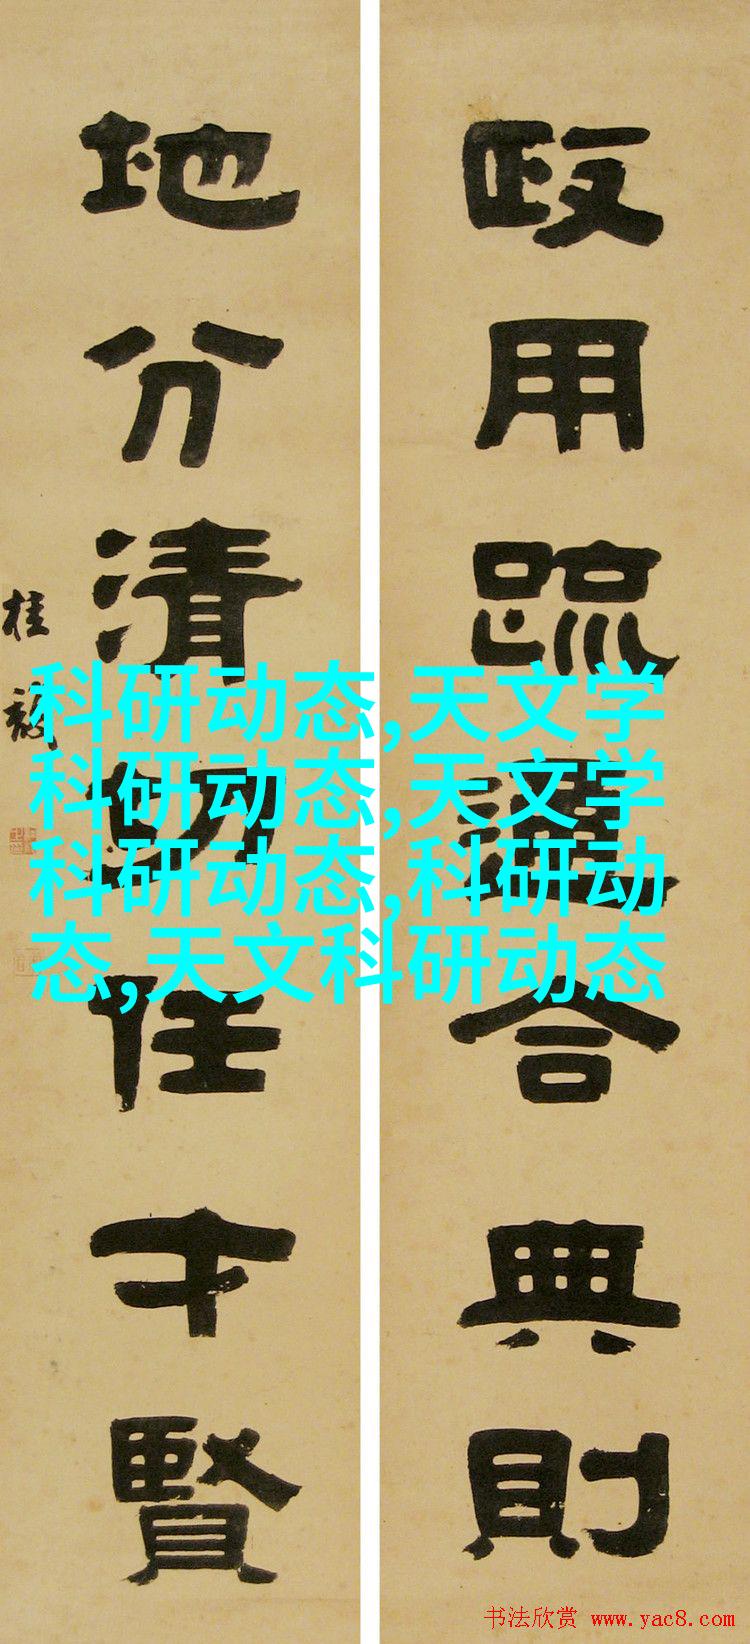 政用疏通合典則
地分清切任才賢
桂馥
科研动态,天文学
科研动态,天文学
科研动态,科研动
态,天文科研动态
书法欣赏 www.yac8.com